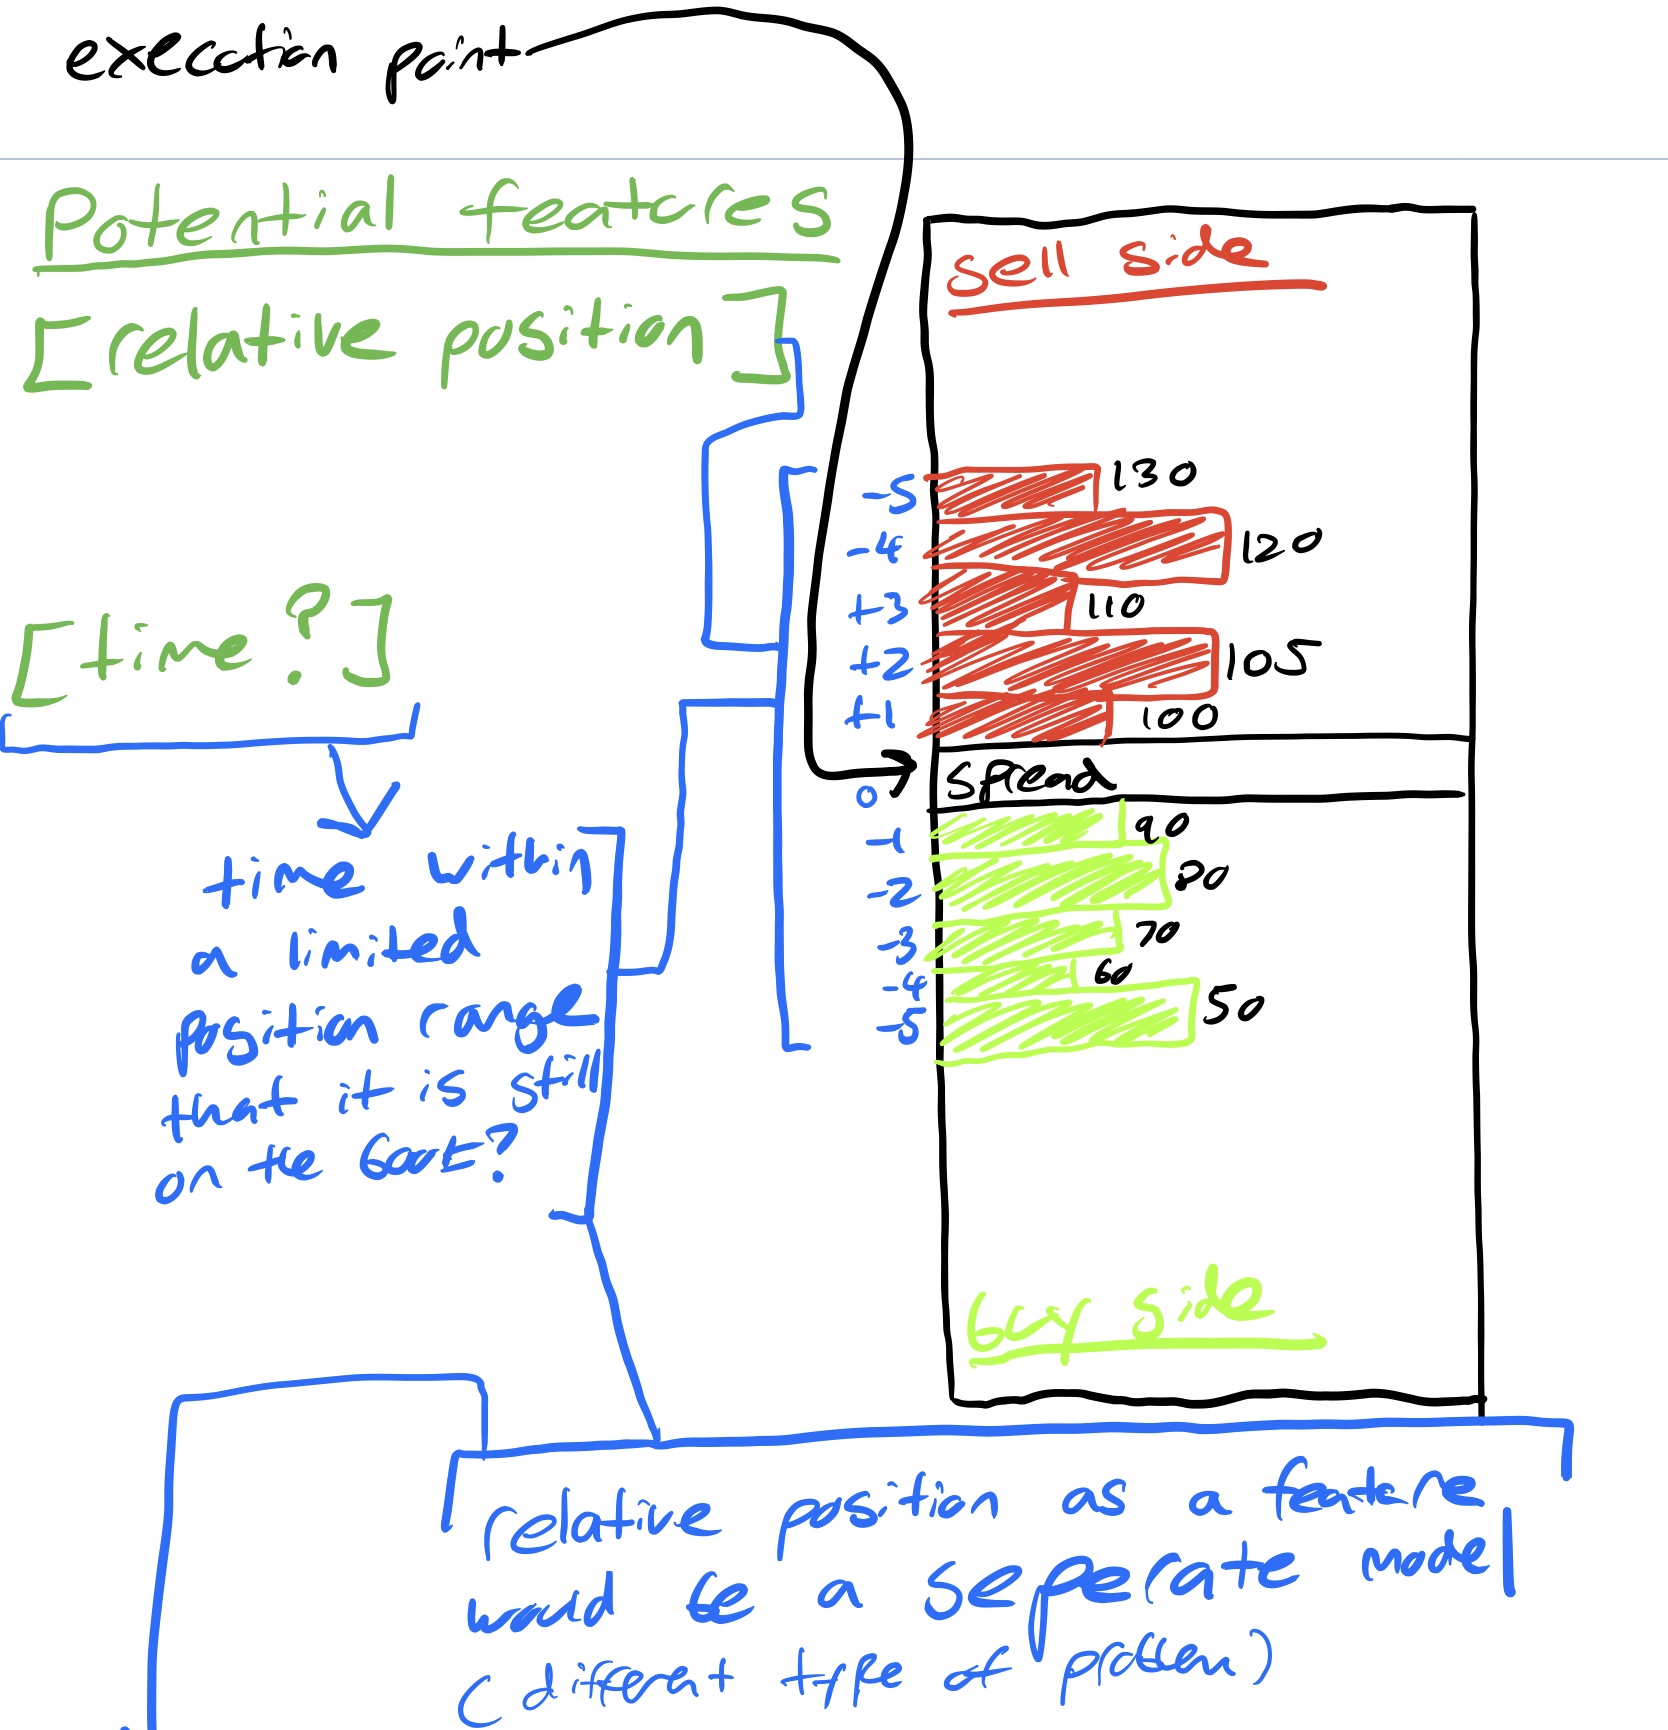 execution point
Potential features
[relative position]
[time?]
time within
a limited
position range
that it is still
on the book?
sell side
-5 130
-4 120
+3 110
+2 105
+1 100
0 spread
-1 90
-2 80
-3 70
-4 60
-5 50
buy side
relative position as a feature
would be a seperate model
(different type of problem)